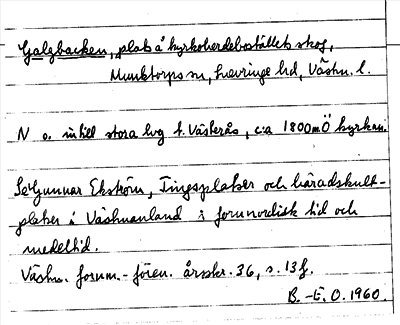 Galgbacken, plats å kyrkoherdebostället skog,
Munktorps sn, Snevringe hd, Västm. l.
N o. intill stora lvg t. Västerås, c:a 1800m Ö kyrkan.
Se Gunnar Ekström, Tingsplatser och häradskult-
platser i Västmanland i fornnordisk tid och
medeltid.
Västm. fornm.-fören. årsskr. 36, s. 13 f.
B.-E. O. 1960.